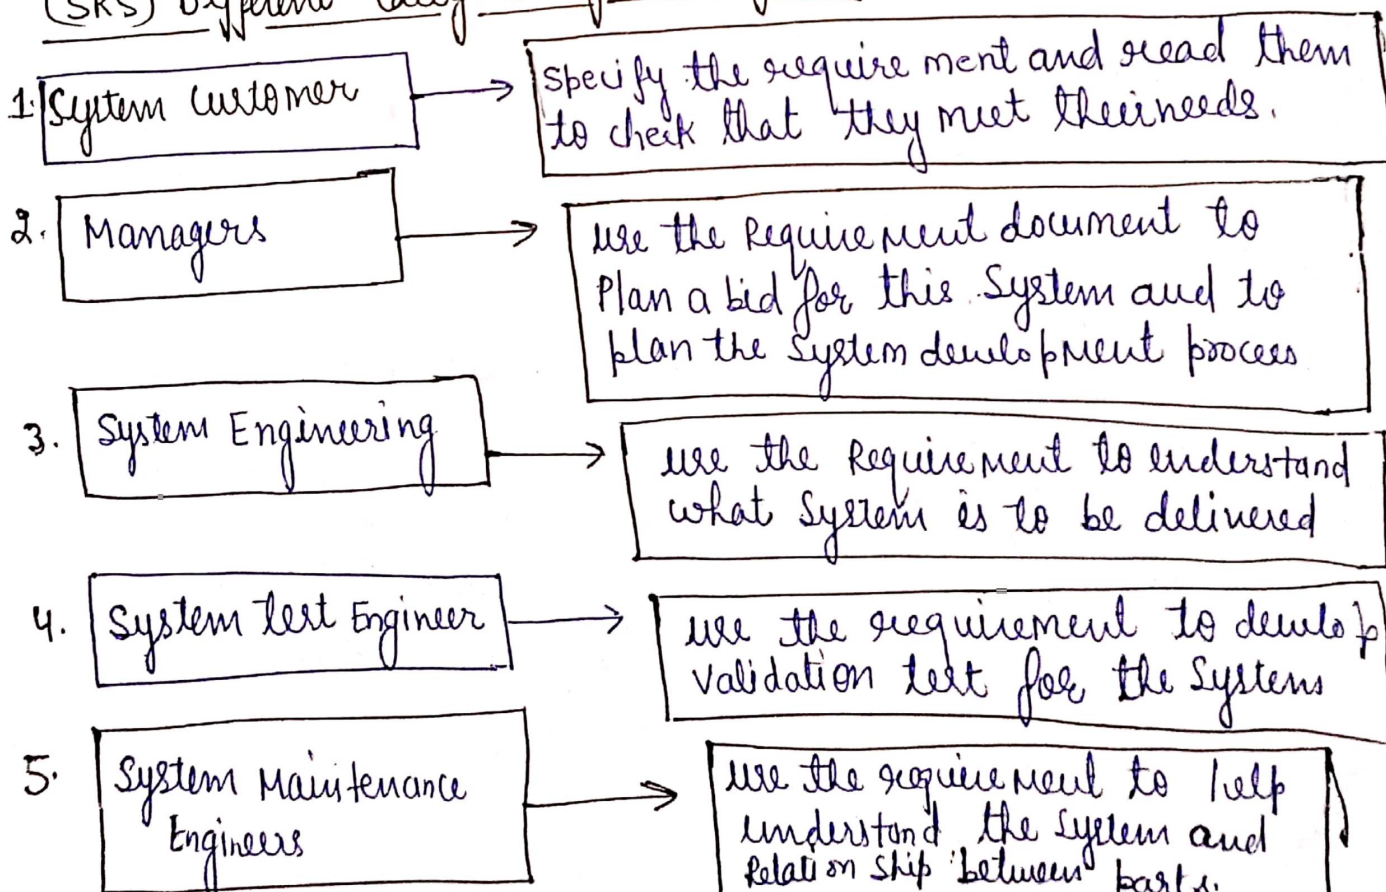 (SRS) Different
1. System Customer
Specify the require ment and read them
to check that they meet theirneeds.
2. Managers
use the Requirement document to
Plan a bid for this System and to
plan the system development process
3. System Engineering
use the Requirement to understand
what System is to be delivered
4. System test Engineer
use the requirement to develop
validation test for the Systems
5. System Maintenance
Engineers
use the requirement to help
understand the System and
Relation Ship between parts.